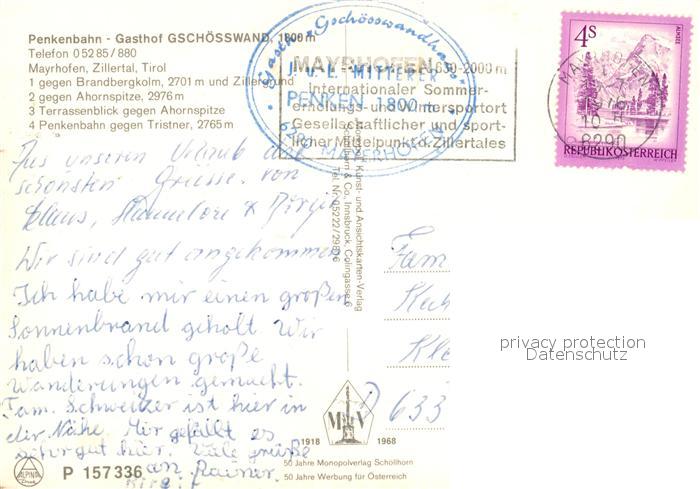 Penkenbahn - Gasthof GSCHÖSSWAND, 1800 m
Telefon 0 52 85 / 880
Mayrhofen, Zillertal, Tirol
1 gegen Brandbergkolm, 2701 m und Zillergrund
2 gegen Ahornspitze, 2976 m
3 Terrassenblick gegen Ahornspitze
4 Penkenbahn gegen Tristner, 2765 m
Gschösswandhaus
MITTERER
PENKEN 1800 m
6290 MAYRHOFEN
MAYRHOFEN 630-2000 m
Internationaler Sommer-
erholungs- und Wintersportort
Gesellschaftlicher und sport-
licher Mittelpunkt d. Zillertales
4S
REPUBLIK ÖSTERREICH
6290
Aus unserem Urlaub die
schönsten Grüsse von
Klaus, Hannelore &
Wir sind gut angekommen
Ich habe mir einen großen
Sonnenbrand geholt Wir
haben schon große
Wanderungen gemacht.
Fam. Schweizer ist hier in
der Nähe. Mir gefällt es
sehr gut hier. Viele grüße
an Rainer.
Kunst- und Ansichtskarten-Verlag
& Co., Innsbruck, Colingasse 6
Tel. 05222/
Fam
Kle
D 633
privacy protection
Datenschutz
M V
1918 1968
50 Jahre Monopolverlag Schöllhorn
50 Jahre Werbung für Österreich
ALPINA
P 157336